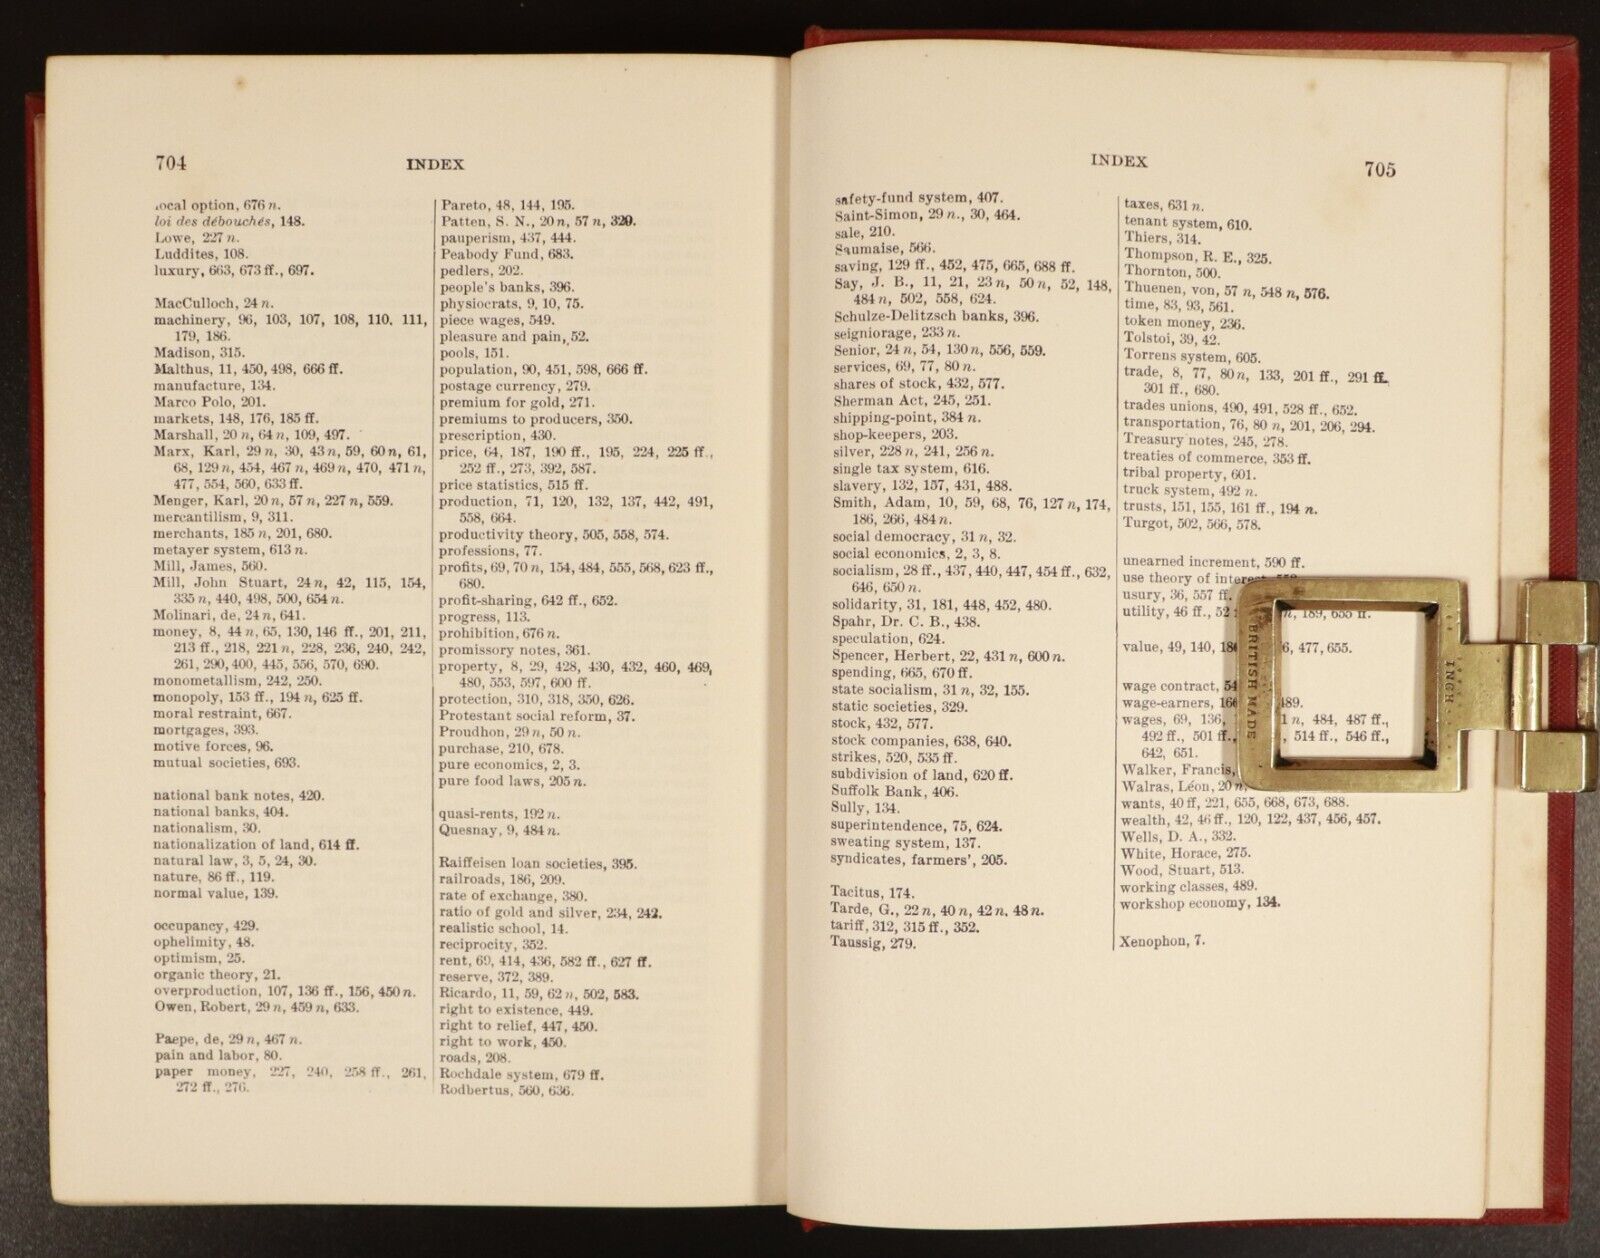 704
INDEX
local option, 676 n.
loi des débouchés, 148.
Lowe, 227 n.
Luddites, 108.
luxury, 663, 673 ff., 697.
MacCulloch, 24 n.
machinery, 96, 103, 107, 108, 110, 111,
179, 186.
Madison, 315.
Malthus, 11, 450, 498, 666 ff.
manufacture, 134.
Marco Polo, 201.
markets, 148, 176, 185 ff.
Marshall, 20 n, 64 n, 109, 497.
Marx, Karl, 29 n, 30, 43 n, 59, 60 n, 61,
68, 129 n, 454, 467 n, 469 n, 470, 471 n,
477, 554, 560, 633 ff.
Menger, Karl, 20 n, 57 n, 227 n, 559.
mercantilism, 9, 311.
merchants, 185 n, 201, 680.
metayer system, 613 n.
Mill, James, 560.
Mill, John Stuart, 24 n, 42, 115, 154,
335 n, 440, 498, 500, 654 n.
Molinari, de, 24 n, 641.
money, 8, 44 n, 65, 130, 146 ff., 201, 211,
213 ff., 218, 221 n, 228, 236, 240, 242,
261, 290, 400, 445, 556, 570, 690.
monometallism, 242, 250.
monopoly, 153 ff., 194 n, 625 ff.
moral restraint, 667.
mortgages, 393.
motive forces, 96.
mutual societies, 693.
national bank notes, 420.
national banks, 404.
nationalism, 30.
nationalization of land, 614 ff.
natural law, 3, 5, 24, 30.
nature, 86 ff., 119.
normal value, 139.
occupancy, 429.
ophelimity, 48.
optimism, 25.
organic theory, 21.
overproduction, 107, 136 ff., 156, 450 n.
Owen, Robert, 29 n, 459 n, 633.
Paepe, de, 29 n, 467 n.
pain and labor, 80.
paper money, 227, 240, 258 ff., 261,
272 ff., 276.
Pareto, 48, 144, 195.
Patten, S. N., 20 n, 57 n, 329.
pauperism, 437, 444.
Peabody Fund, 683.
pedlers, 202.
people's banks, 396.
physiocrats, 9, 10, 75.
piece wages, 549.
pleasure and pain, 52.
pools, 151.
population, 90, 451, 598, 666 ff.
postage currency, 279.
premium for gold, 271.
premiums to producers, 350.
prescription, 430.
price, 64, 187, 190 ff., 195, 224, 225 ff.,
252 ff., 273, 392, 587.
price statistics, 515 ff.
production, 71, 120, 132, 137, 442, 491,
558, 664.
productivity theory, 505, 558, 574.
professions, 77.
profits, 69, 70 n, 154, 484, 555, 568, 623 ff.,
680.
profit-sharing, 642 ff., 652.
progress, 113.
prohibition, 676 n.
promissory notes, 361.
property, 8, 29, 428, 430, 432, 460, 469,
480, 553, 597, 600 ff.
protection, 310, 318, 350, 626.
Protestant social reform, 37.
Proudhon, 29 n, 50 n.
purchase, 210, 678.
pure economics, 2, 3.
pure food laws, 205 n.
quasi-rents, 192 n.
Quesnay, 9, 484 n.
Raiffeisen loan societies, 395.
railroads, 186, 209.
rate of exchange, 380.
ratio of gold and silver, 234, 242.
realistic school, 14.
reciprocity, 352.
rent, 69, 414, 436, 582 ff., 627 ff.
reserve, 372, 389.
Ricardo, 11, 59, 62 n, 502, 583.
right to existence, 449.
right to relief, 447, 450.
right to work, 450.
roads, 208.
Rochdale system, 679 ff.
Rodbertus, 560, 636.
INDEX
705
safety-fund system, 407.
Saint-Simon, 29 n., 30, 464.
sale, 210.
Saumaise, 566.
saving, 129 ff., 452, 475, 665, 688 ff.
Say, J. B., 11, 21, 23 n, 50 n, 52, 148,
484 n, 502, 558, 624.
Schulze-Delitzsch banks, 396.
seigniorage, 233 n.
Senior, 24 n, 54, 130 n, 556, 559.
services, 69, 77, 80 n.
shares of stock, 432, 577.
Sherman Act, 245, 251.
shipping-point, 384 n.
shop-keepers, 203.
silver, 228 n, 241, 256 n.
single tax system, 616.
slavery, 132, 157, 431, 488.
Smith, Adam, 10, 59, 68, 76, 127 n, 174,
186, 266, 484 n.
social democracy, 31 n, 32.
social economics, 2, 3, 8.
socialism, 28 ff., 437, 440, 447, 454 ff., 632,
646, 650 n.
solidarity, 31, 181, 448, 452, 480.
Spahr, Dr. C. B., 438.
speculation, 624.
Spencer, Herbert, 22, 431 n, 600 n.
spending, 665, 670 ff.
state socialism, 31 n, 32, 155.
static societies, 329.
stock, 432, 577.
stock companies, 638, 640.
strikes, 520, 535 ff.
subdivision of land, 620 ff.
Suffolk Bank, 406.
Sully, 134.
superintendence, 75, 624.
sweating system, 137.
syndicates, farmers', 205.
Tacitus, 174.
Tarde, G., 22 n, 40 n, 42 n, 48 n.
tariff, 312, 315 ff., 352.
Taussig, 279.
taxes, 631 n.
tenant system, 610.
Thiers, 314.
Thompson, R. E., 325.
Thornton, 500.
Thuenen, von, 57 n, 548 n, 576.
time, 83, 93, 561.
token money, 236.
Tolstoi, 39, 42.
Torrens system, 605.
trade, 8, 77, 80 n, 133, 201 ff., 291 ff.,
301 ff., 680.
trades unions, 490, 491, 528 ff., 652.
transportation, 76, 80 n, 201, 206, 294.
Treasury notes, 245, 278.
treaties of commerce, 353 ff.
tribal property, 601.
truck system, 492 n.
trusts, 151, 155, 161 ff., 194 n.
Turgot, 502, 566, 578.
unearned increment, 590 ff.
use theory of interest,
usury, 36, 557 ff.
utility, 46 ff., 52 n, 189, 655 ff.
value, 49, 140, 477, 655.
wage contract,
wage-earners, 489.
wages, 69, 136, n, 484, 487 ff.,
492 ff., 501 ff., 514 ff., 546 ff.,
642, 651.
Walker, Francis,
Walras, Léon, 20 n,
wants, 40 ff, 221, 655, 668, 673, 688.
wealth, 42, 46 ff., 120, 122, 437, 456, 457.
Wells, D. A., 332.
White, Horace, 275.
Wood, Stuart, 513.
working classes, 489.
workshop economy, 134.
Xenophon, 7.
BRITISH MADE